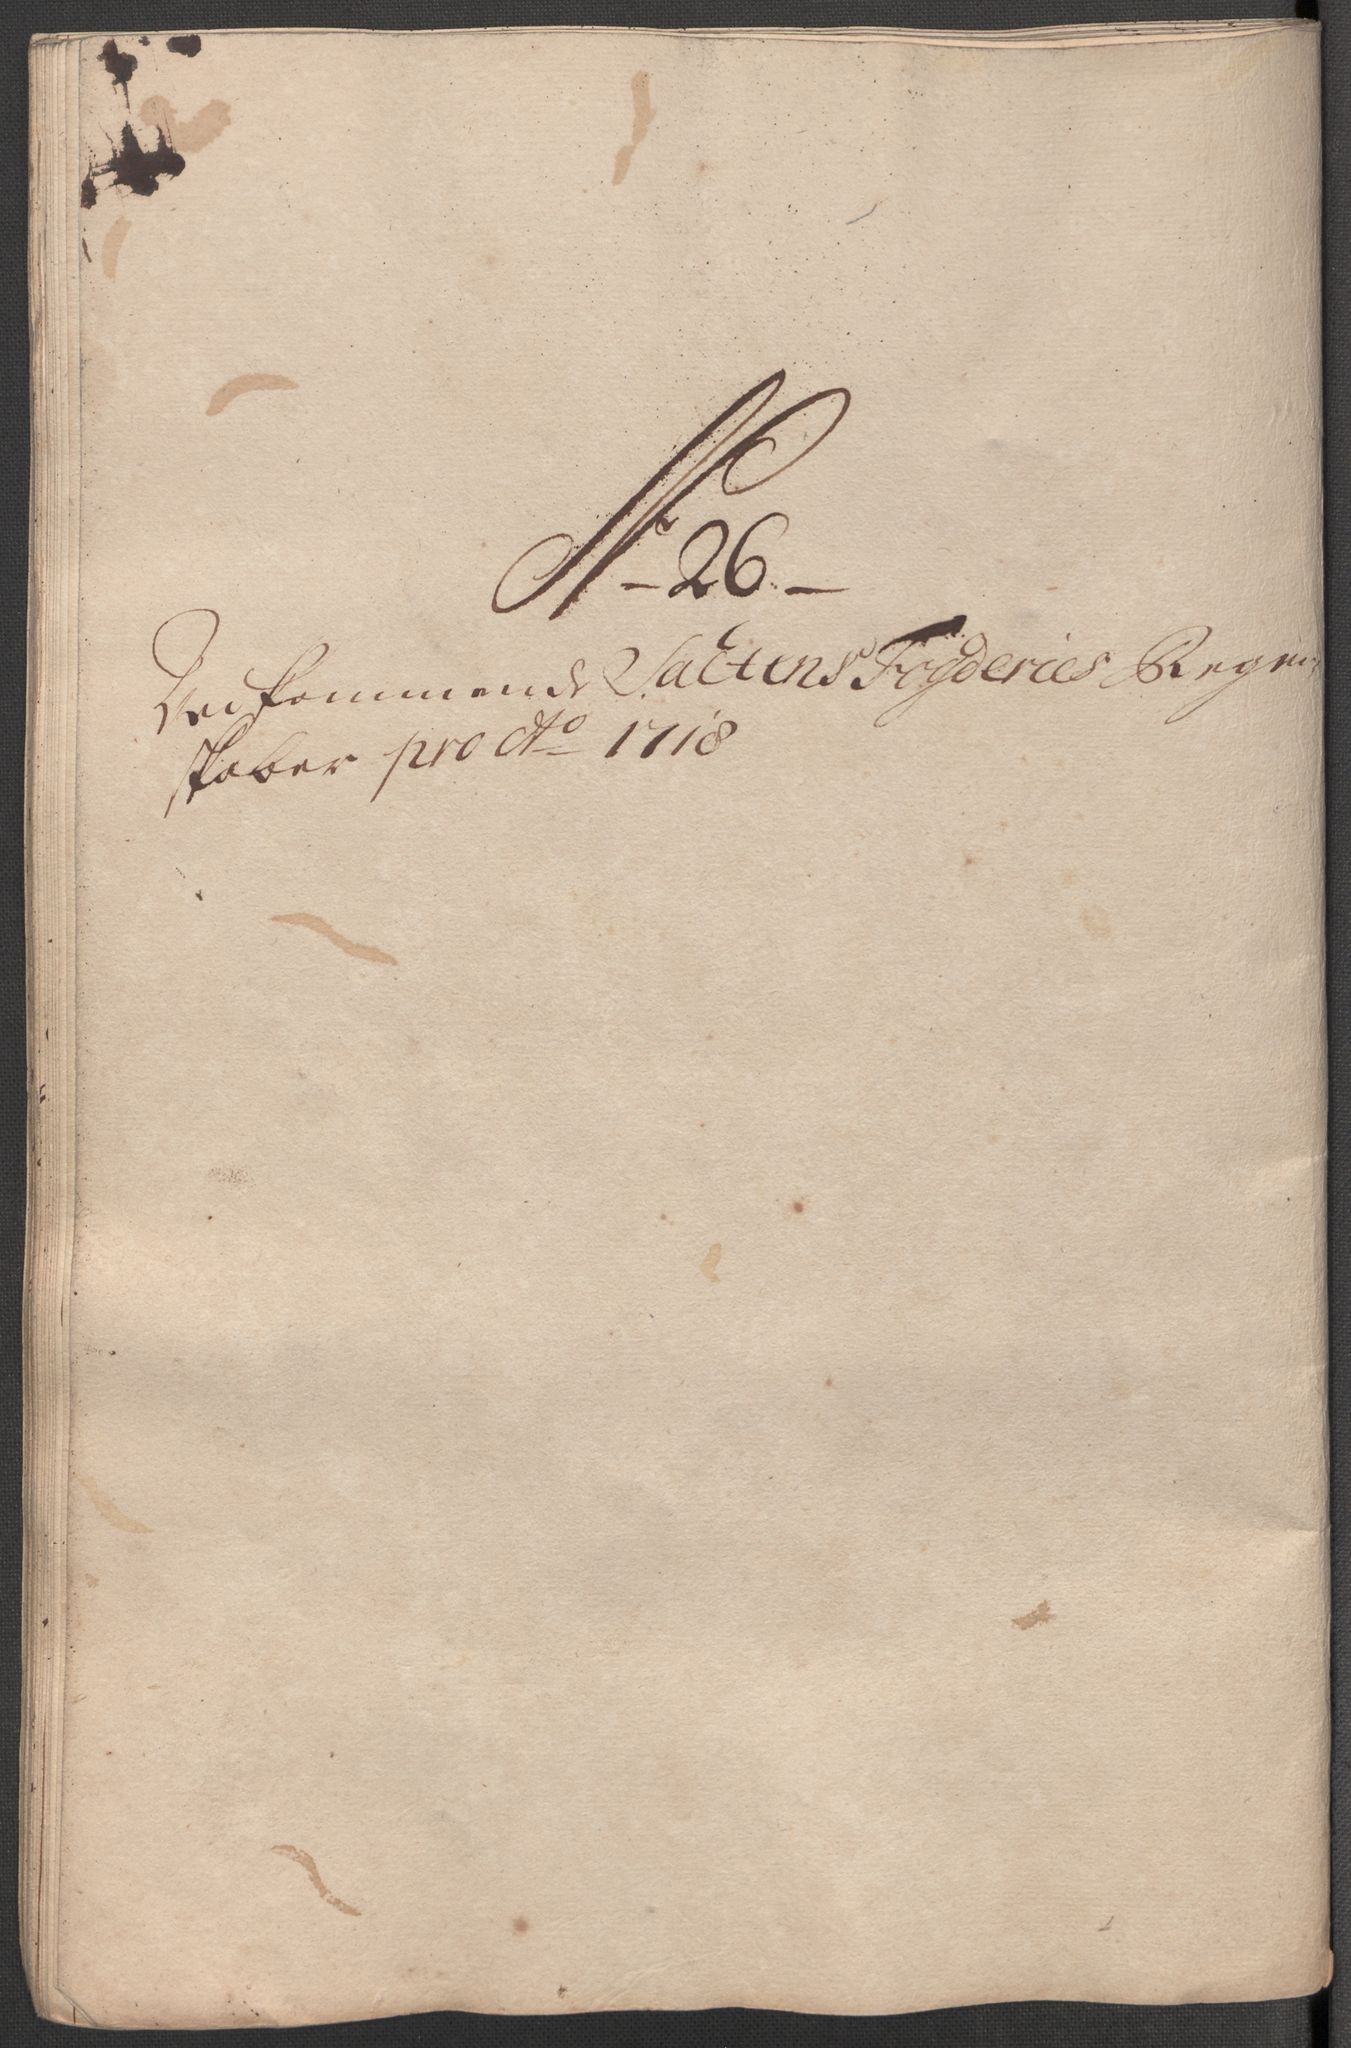 No - 26 -
Vedkommende Saltens Fogderies Regen-
skaber pro Ao 1718